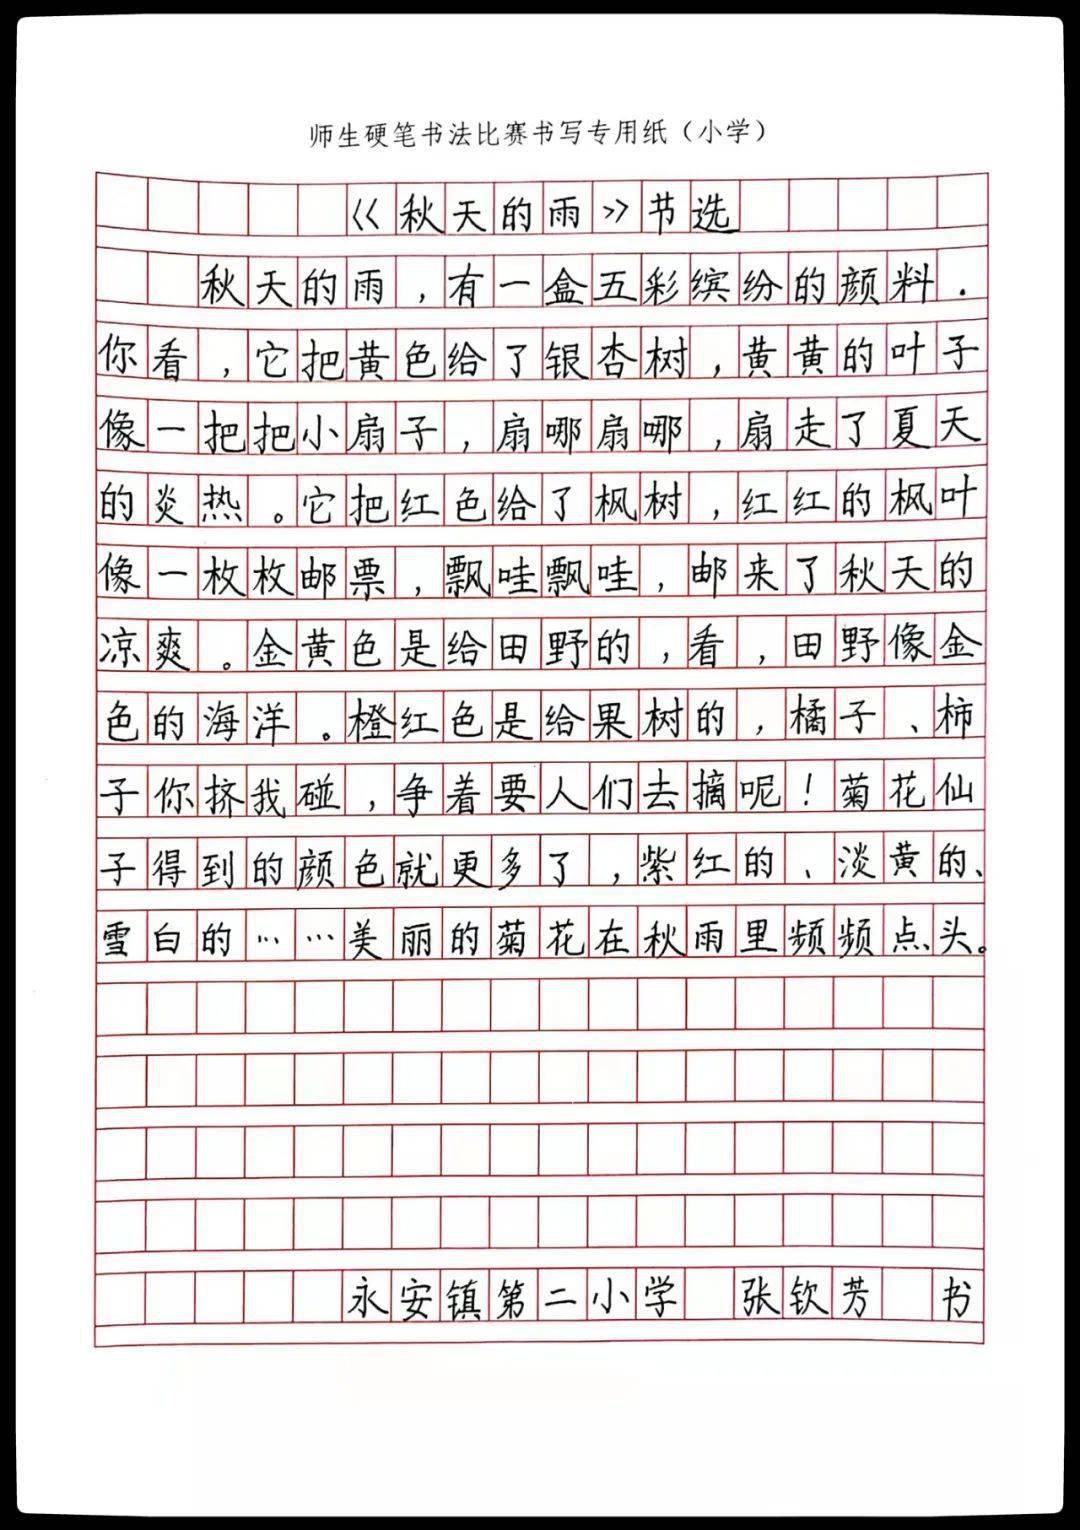 师生硬笔书法比赛书写专用纸（小学）
《秋天的雨》节选
秋天的雨，有一盒五彩缤纷的颜料．
你看，它把黄色给了银杏树，黄黄的叶子
像一把把小扇子，扇哪扇哪，扇走了夏天
的炎热。它把红色给了枫树，红红的枫叶
像一枚枚邮票，飘哇飘哇，邮来了秋天的
凉爽。金黄色是给田野的，看，田野像金
色的海洋。橙红色是给果树的，橘子、柿
子你挤我碰，争着要人们去摘呢！菊花仙
子得到的颜色就更多了，紫红的、淡黄的、
雪白的……美丽的菊花在秋雨里频频点头。
永安镇第二小学 张钦芳 书